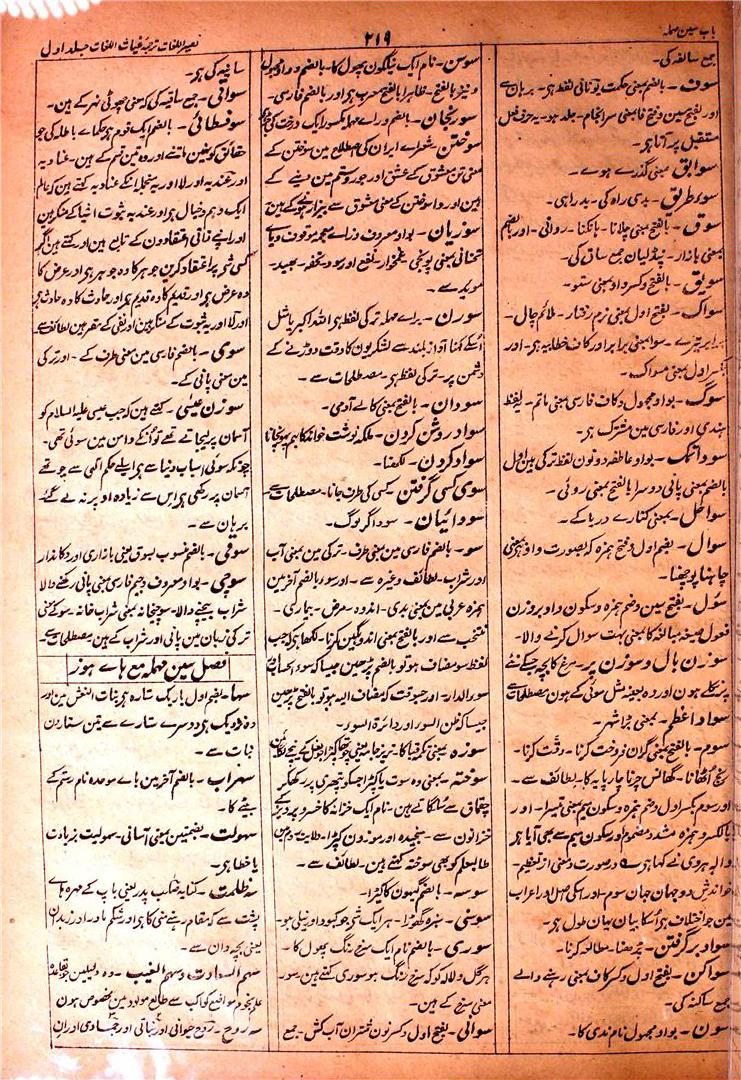 باب سین مہملہ
۲۱۹
نصیر اللغات ترجمۂ غیاث اللغات جلد اول
جمع سالفہ کی۔
سوف۔ بالضم بمعنی حکمت یونانی لفظ ہی۔ برہان سے
اور بفتح سین و فتح فا بمعنی سرانجام۔ جلد ہو۔ یہ حرف فعل
مستقبل پر آتا ہو۔
سوابق بمعنی گذرے ہوے۔
سوء طریق۔ بدی راہ کی۔ بد راہی۔
سوق۔ بالفتح بمعنی چلانا۔ ہانکنا۔ روانی۔ اور بالضم
بمعنی بازار۔ پنڈلیان جمع ساق کی۔
سویق۔ بالفتح وکسر واو بمعنی ستو۔
سواک۔ بفتح اول بمعنی نرم رفتار۔ ملائم چال۔
برابر تیرے۔ سوا بمعنی برابر اور کاف خطابیہ ہی۔ اور
بکسر اول بمعنی مسواک۔
سوگ۔ بواو مجہول وکاف فارسی بمعنی ماتم۔ یہ لفظ
ہندی اور فارسی مین مشترک ہی۔
سو داتنگ۔ بواو عاطفہ دونون لفظ ترکی ہین اول
بالضم بمعنی پانی دوسرا بالفتح بمعنی روٹی۔
سواحل۔ بمعنی کنارے دریا کے۔
سوال۔ بضم اول وفتح ہمزہ کہ بصورت واو ہو بمعنی
چاہنا پوچھنا۔
سؤل۔ بفتح سین وضم ہمزہ وسکون واو بروزن
فعول صیغہ مبالغہ کا بمعنی بہت سوال کرنے والا۔
سوزن بال و سوزن پر۔ مرغ کا بچہ جسکے نئے
پر نکلے ہون اور وہ بعینہ مثل سوئی کے ہون مصطلحات سے
سواد اعظم۔ بمعنی بڑا شہر۔
سوم۔ بالفتح بمعنی گران فروخت کرنا۔ وقت کرنا۔
رنج اُٹھانا۔ گھانس چرنا چارپایہ کا۔ لطائف سے۔
اور سوم بکسر اول وضم ہمزہ وسکون میم بمعنی تیسرا۔ اور
بالکسر و ہمزہ مشدد مضموم اور سکون میم سے بھی آیا ہی
والہ ہروی نے کہا ہی
سواد برگرفتن۔ پڑھنا۔ مطالعہ کرنا۔
سواکن۔ بفتح اول وکسر کاف بمعنی رہنے والے
جمع ساکنہ کی۔
سون۔ بواو مجہول نام ندی کا۔
سوسن۔ نام ایک نیلگون پھول کا۔ بالضم و واو مجہول
و نیز بالفتح۔ ظاہرا بالفتح معرب ہی اور بالضم فارسی۔
سورنجان۔ بالضم و راے مہملہ مکسور ایک درخت کی جڑ
سوختن۔ شعراے ایران کی اصطلاح مین سوختن کے
سوزیان۔ بواو معروف و زاے معجمہ موقوف و یاے
تحتانی بمعنی پونجی۔ غمخوار۔ نفع اور سود۔ تحفہ۔ بھید۔
موید سے۔
سورن۔ براے مہملہ ترکی لفظ ہی اللہ اکبر یا مثل
اُسکے کہنا آواز بلند سے لشکریون کا وقت دوڑنے کے
دشمن پر۔ ترکی لفظ ہی۔ مصطلحات سے۔
سودان۔ بالفتح بمعنی کالے آدمی۔
سواد روشن کردن۔ ملکہ نوشت خواند کا بہم پہونچانا
سواد کردن۔ لکھنا۔
سوی کسی گرفتن۔ کسی کی طرف جانا۔ مصطلحات سے
سودائیان۔ سوداگر لوگ۔
سو۔ بالضم فارسی مین بمعنی طرف۔ ترکی مین بمعنی آب
اور شراب۔ لطائف وغیرہ سے۔ اور سوء بالضم آخر مین
ہمزہ عربی مین بمعنی بدی۔ اندوہ۔ مرض۔ بیماری۔
منتخب سے اور بالفتح بمعنی اندوہگین کرنا۔ لکھا ہی کہ جب
لفظ سو مضاف ہو تو بالضم پڑھین جیسا کہ سوء الحساب
سوء الدار۔ اور جبوقت کہ مضاف الیہ ہو تو بالفتح پڑھین
جیسا کہ ظن السوء اور دائرۃ السوء۔
سوختہ۔ بمعنی وہ سوت یا کپڑا جسکو پتھری پر رکھکر
چقماق سے سُلگاتے ہین۔ نام ایک خزانہ کا خسرو پرویز کے
خزانون سے۔ سنجیدہ اور موزون کپڑا۔
طالبعلم کو بھی سوختہ کہتے ہین۔ لطائف سے۔
سوسہ۔ بالضم گیہون کا کیڑا۔
سوسنی۔ سبزہ گھوڑا۔ ہر ایک شی جو کبود اور نیلی ہو۔
سوری۔ بالضم نام ایک سرخ رنگ پھول کا۔
ہر گل و لالہ کو کہ سرخ رنگ ہو سوری کہتے ہین۔ سور
بمعنی سرخ کے ہین۔
سوانی۔ بفتح اول وکسر نون شتران آب کش۔ جمع
سانیہ کی ہی۔
سواقی۔ جمع ساقیہ کی بمعنی چھوٹی نہر کے ہین۔
سوفسطائی۔ بالضم ایک قوم ہی حکماے باطلہ کی جو
حقائق کو نہین مانتے اور وہ تین قسم کے ہین۔ عنادیہ
اور عندیہ اور لاادریہ منجملہ انکے عنادیہ کہتے ہین کہ عالم
ایک وہم و خیال ہی اور عندیہ ثبوت اشیا کے منکر ہین
اور اپنے تئین اعتقادون کے تابع ہین اور کہتے ہین اگر
کسی شی پر اعتقاد کرین جوہر کا وہ جوہر ہی اور عرض کا
وہ عرض ہی اور قدیم کا وہ قدیم ہی اور حادث کا وہ حادث ہی
اور لاادریہ ثبوت کے منکر ہین اور نفی کے مقر ہین لطائف سے
سوی۔ بالضم فارسی مین بمعنی طرف کے۔ اور ترکی
مین بمعنی پانی کے۔
سوزن عیسیٰ۔ کہتے ہین کہ جب عیسی علیہ السلام کو
آسمان پر لیجاتے تھے تو اُنکے دامن مین سوئی تھی۔
چونکہ سوئی اسباب دنیا سے ہی اسلیے حکم الٰہی سے چوتھے
آسمان پر رکھی ہی اس سے زیادہ اوپر نہ لے گئے
برہان سے۔
سوقی۔ بالضم منسوب بسوق یعنی بازاری اور دکاندار
سوچی۔ بواو معروف و جیم فارسی بمعنی پانی رکھنے والا
شراب بیچنے والا۔ سوچیخانہ بمعنی شراب خانہ۔ سو کے معنی
ترکی زبان مین پانی اور شراب کے ہین مصطلحات سے۔
فصل سین مہملہ مع ہاے ہوز
سہا۔ بضم اول باریک ستارہ ہی بنات النعش مین اور
وہ نزدیک ہی دوسرے ستارے سے تین ستارون
بنات سے۔
سہراب۔ بالضم آخر مین باے موحدہ نام رستم کے
بیٹے کا۔
سہولت۔ بضمتین بمعنی آسانی۔ سہولیت بزیادت
یا خطا ہی۔
سہ ظلمت۔ کنایہ صلب پدر یعنی باپ کے مہرہاے
پشت سے کہ مقام رہنے منی کا ہی اور شکم مادر اور زہدان
یعنی بچہ دان سے۔
سہم السعادت و سہم الغیب۔ وہ دلیلین
علم نجوم و مواضع کواکب سے طالع مولود مین مخصوص ہون
سہ روح۔ روح حیوانی اور نباتی اور جمادی اور ان